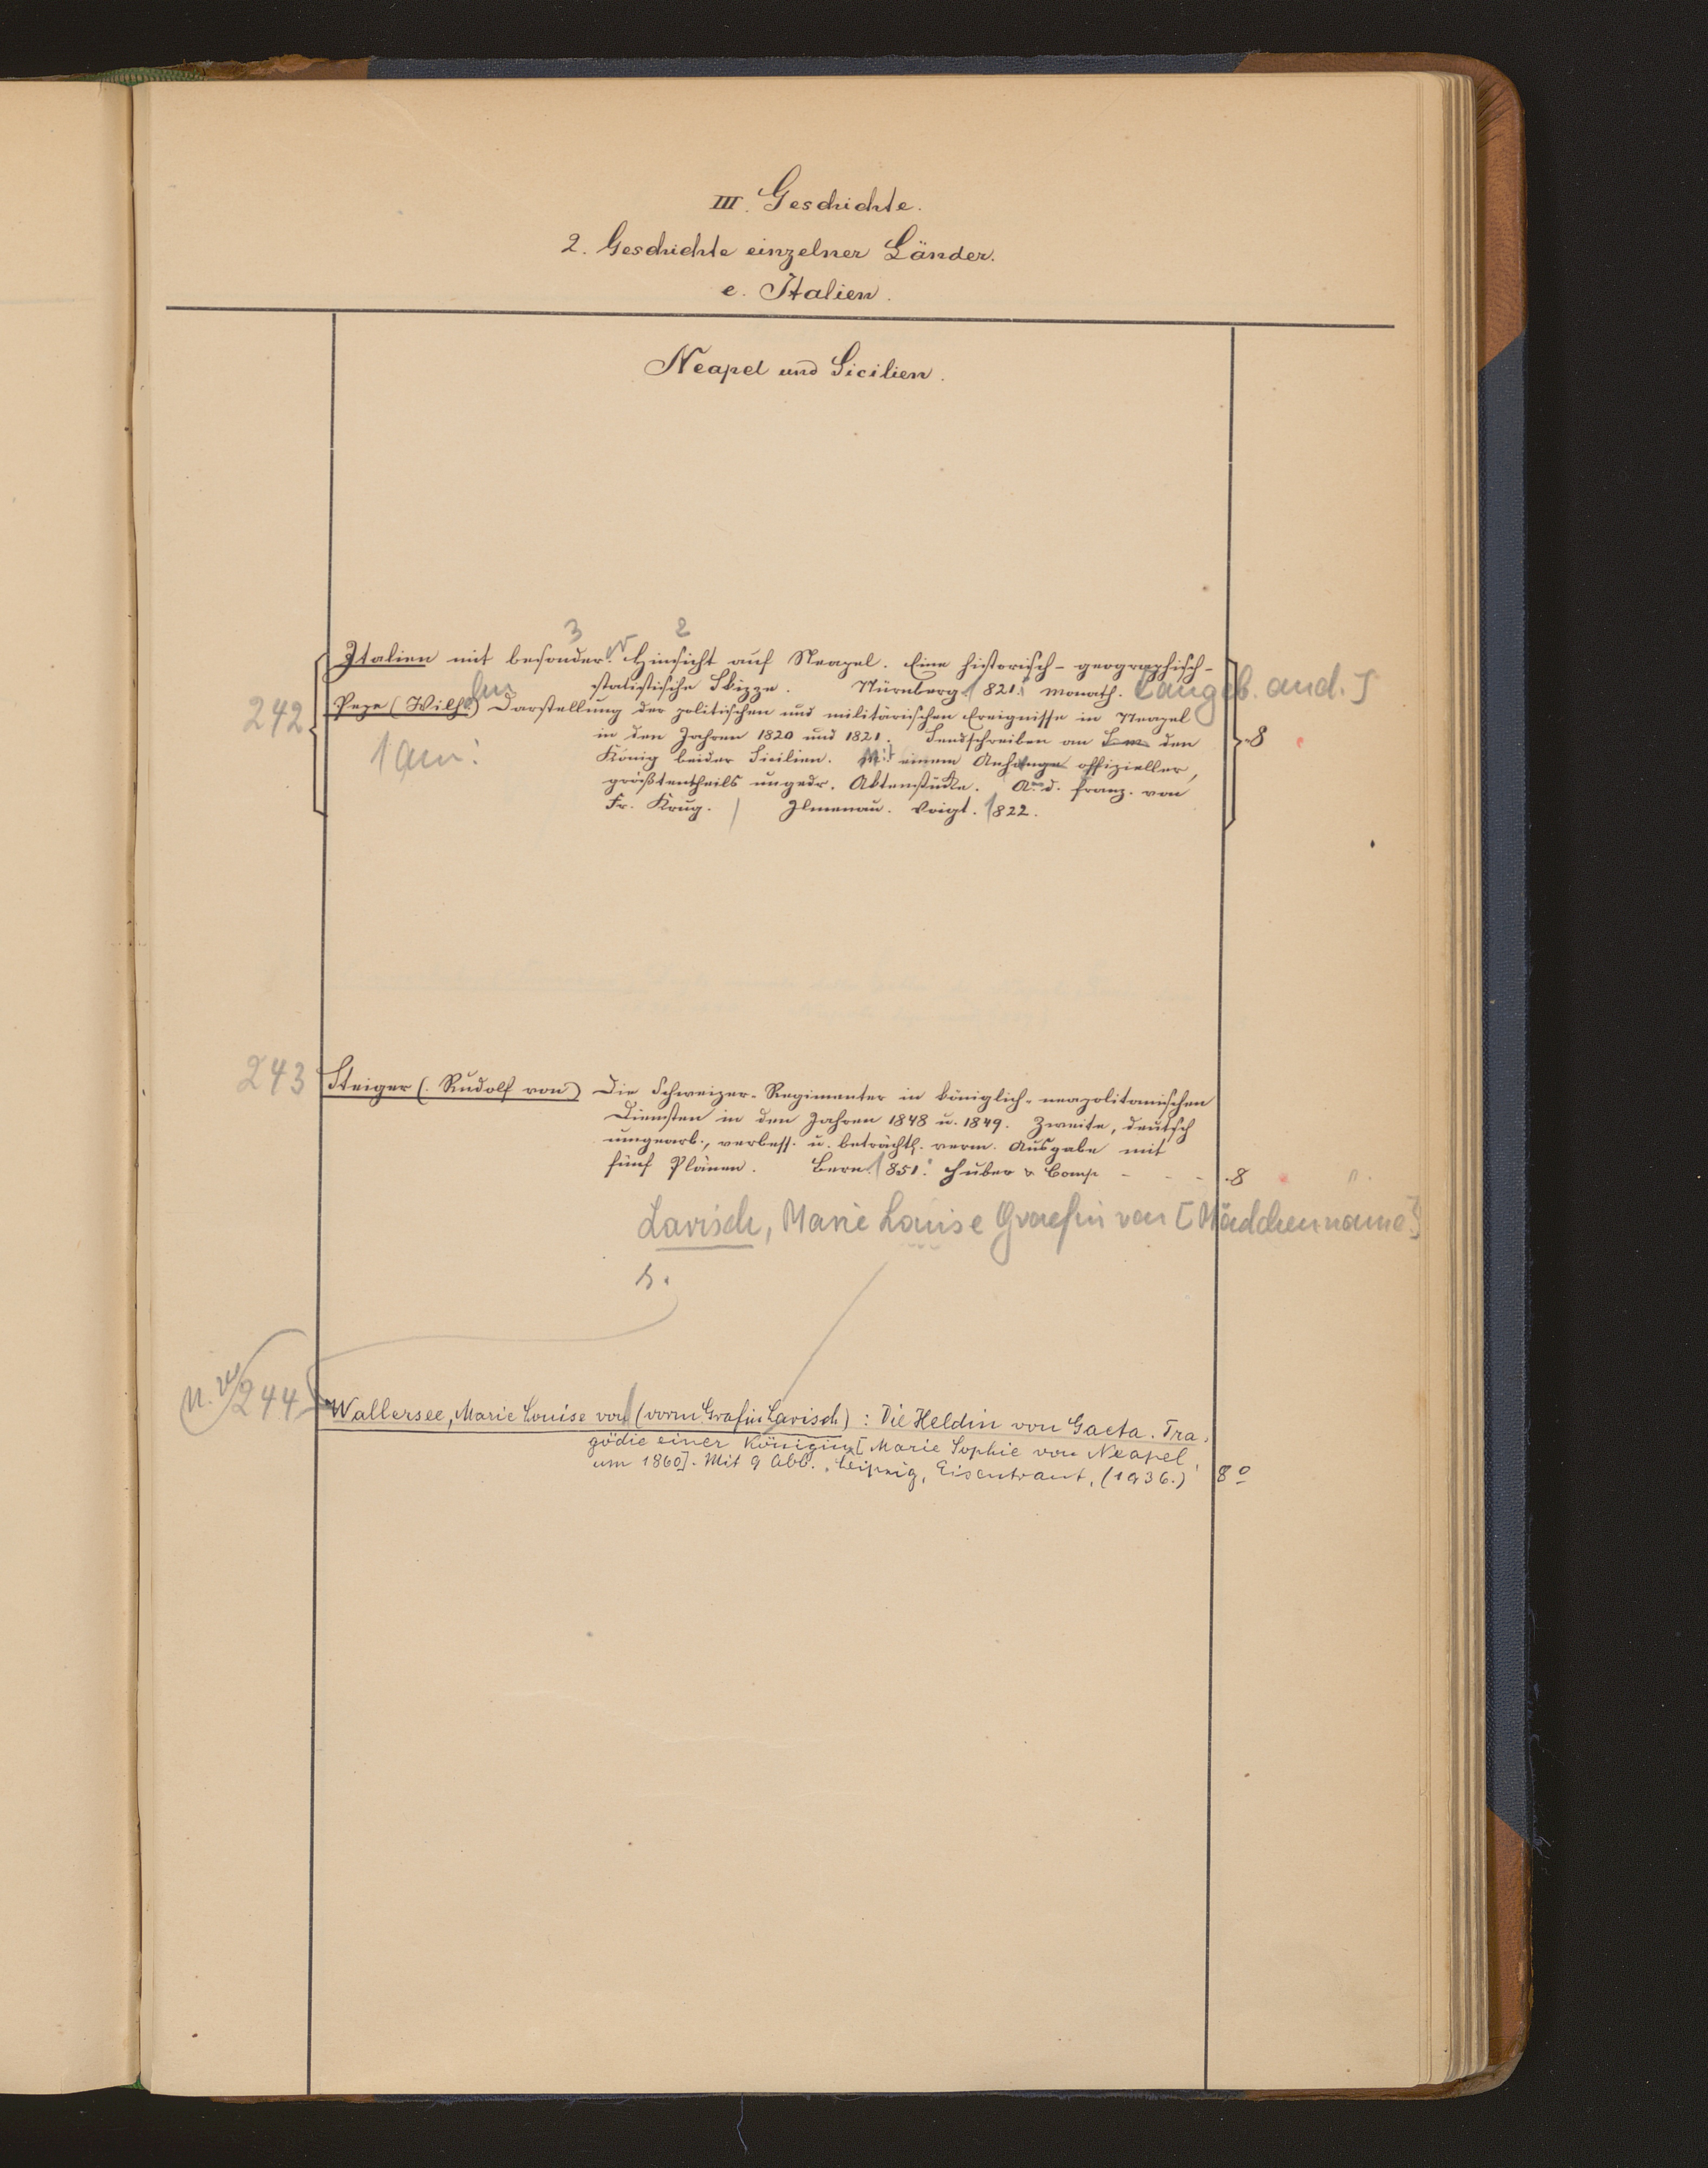 III. Geschichte.
2. Geschichte einzelner Länder.
e. Italien.
Neapel und Sicilien.
3 2
Italien mit besonder. Hinsicht auf Neapel. Eine historisch-geographisch-
statistische Skizze. Nürnberg 1821. Monath. [angeb. and.]
242 Pepe (Wilh.) Darstellung der politischen und militärischen Ereignisse in Neapel
in den Jahren 1820 und 1821. Sendschreiben an den 8
1 an: König beider Sicilien. Mit einem Anhange offizieller,
größtentheils ungedr. Aktenstücke. A. d. Franz. von
Fr. Krug. Ilmenau. Voigt. 1822.
243 Steiger (Rudolf von) Die Schweizer-Regimenter in königlich-neapolitanischen
Diensten in den Jahren 1848 u. 1849. Zweite, deutsch
umgearb., verbess. u. beträchtl. verm. Ausgabe mit
fünf Plänen. Bern 1851. Huber & Comp - - - 8
Larisch, Marie Louise Graefin von [Mädchenname]
s.
244 Wallersee, Marie Louise von (vorm Gräfin Larisch): Die Heldin von Gaeta. Tra-
gödie einer Königin [Marie Sophie von Neapel,
um 1860]. Mit 9 Abb. Leipzig, Eisentraut, (1936.) 8º